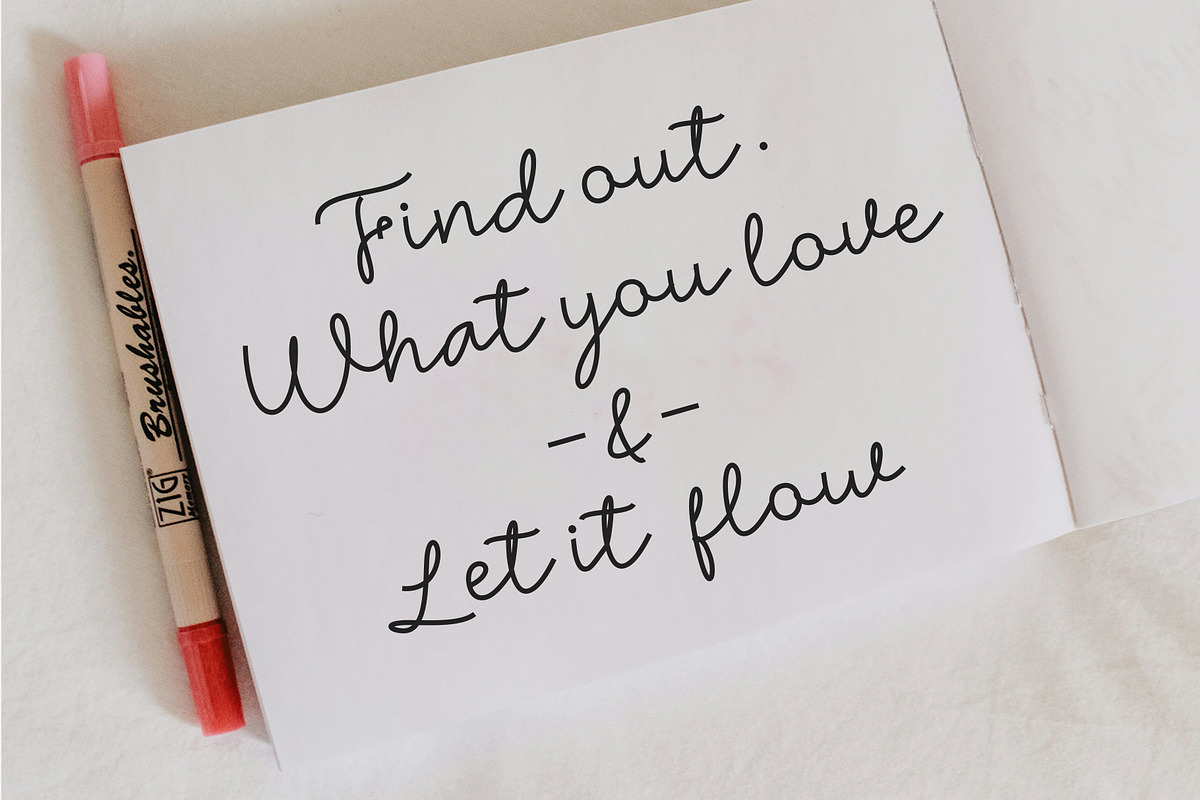 Find out.
What you love
- & -
Let it flow
Brushables.
ZIG
Memory